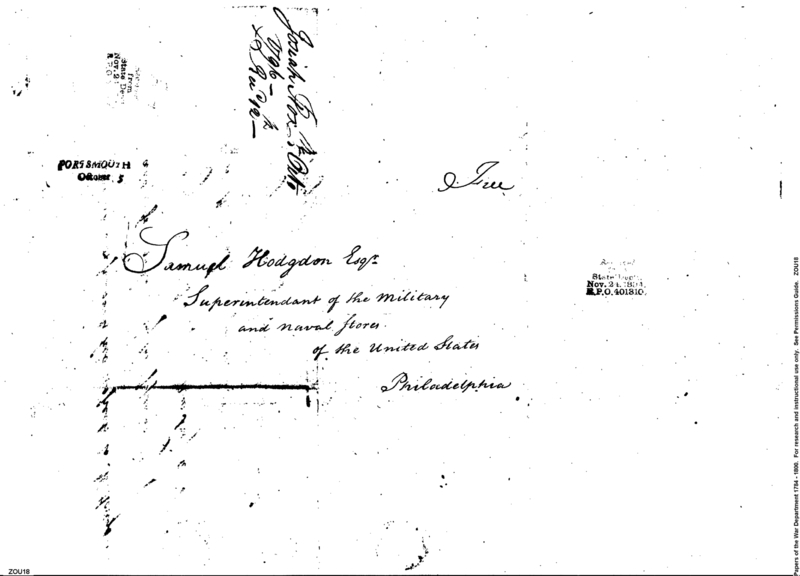 Josiah Fox 5 Octo
1796 —
Recd 12 —
State Dept
from
Nov. 2
R.P.O.
PORTSMOUTH
October 5
Free
Samuel Hodgdon Esqr
Superintendant of the Military
and naval stores
of the United States
Philadelphia
State Dept.
Nov. 24, 1894.
R.P.O. 401810.
Papers of the War Department 1784 - 1800. For research and instructional use only. See Permissions Guide. ZOU18
ZOU18